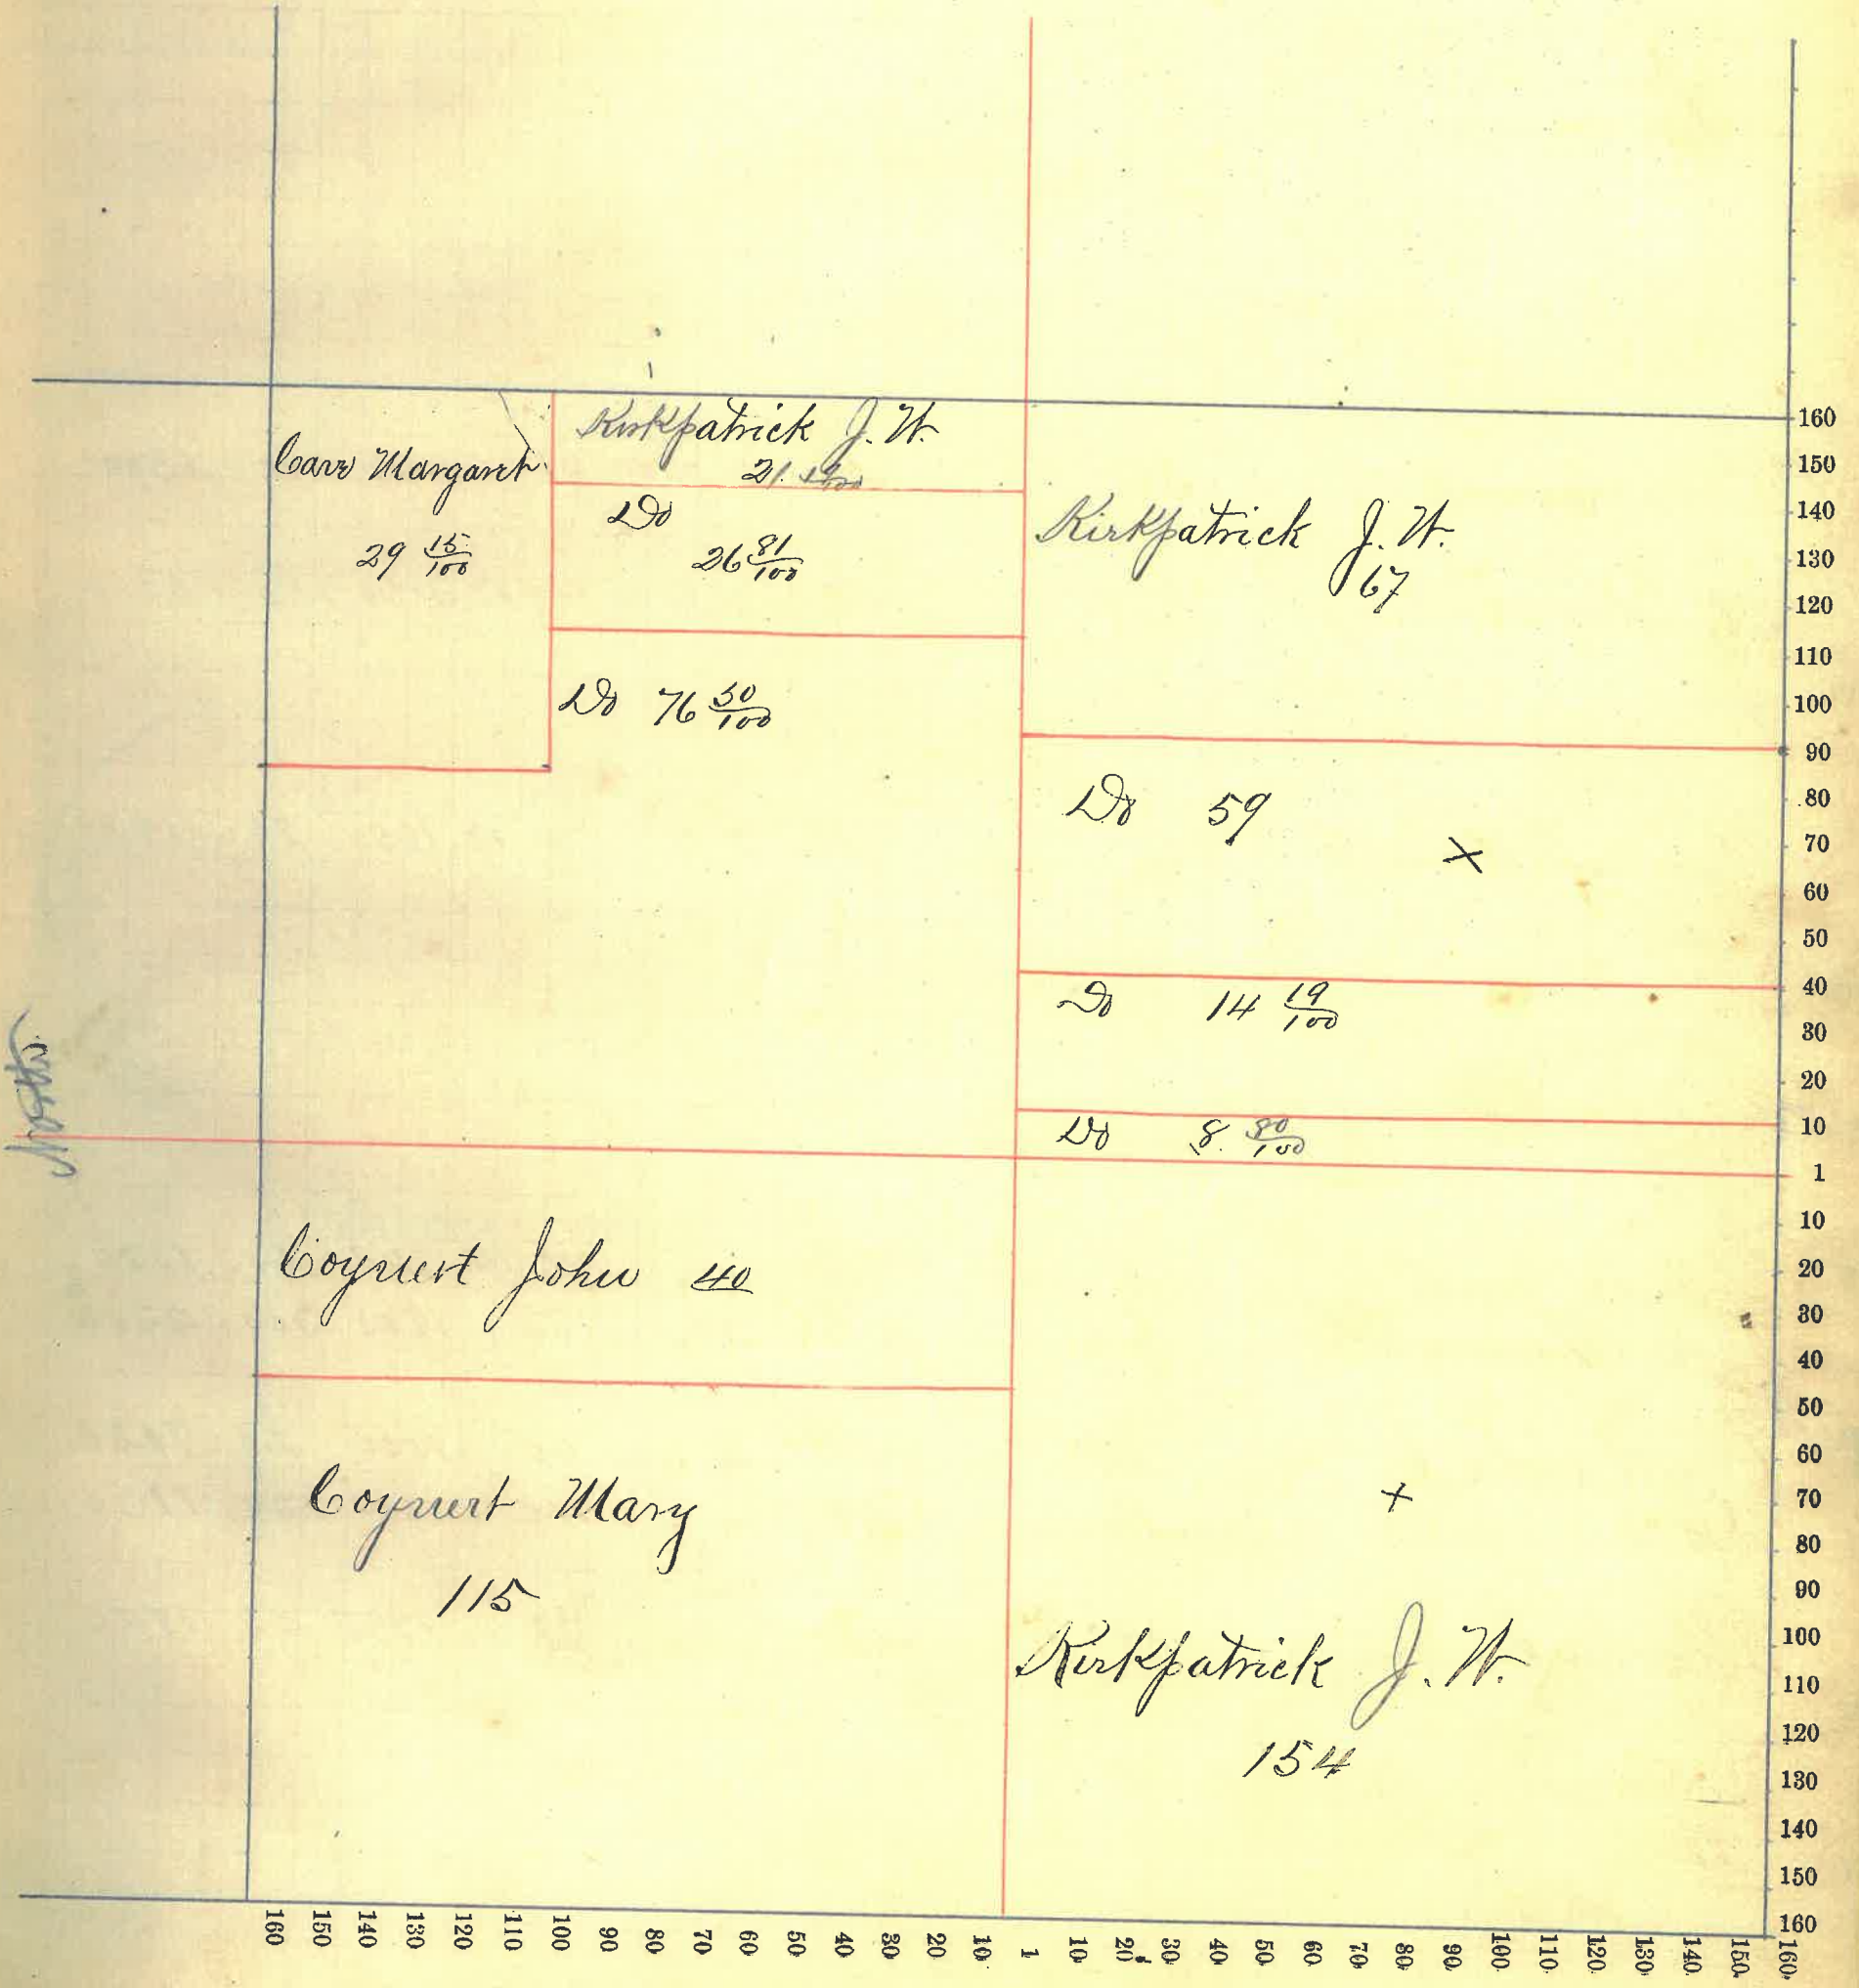 Kirkpatrick J. W.
21.
Carr Margaret
29 15/100
Do
26 81/100
Do 76 50/100
Kirkpatrick J. W.
67
Do 59
X
Do 14 19/100
Do 8. 80/100
North
Coynert John 40
Coynert Mary
115
X
Kirkpatrick J. W.
154
160
150
140
130
120
110
100
90
80
70
60
50
40
30
20
10
1
10
20
30
40
50
60
70
80
90
100
110
120
130
140
150
160
160 150 140 130 120 110 100 90 80 70 60 50 40 30 20 10 1 10 20 30 40 50 60 70 80 90 100 110 120 130 140 150 160